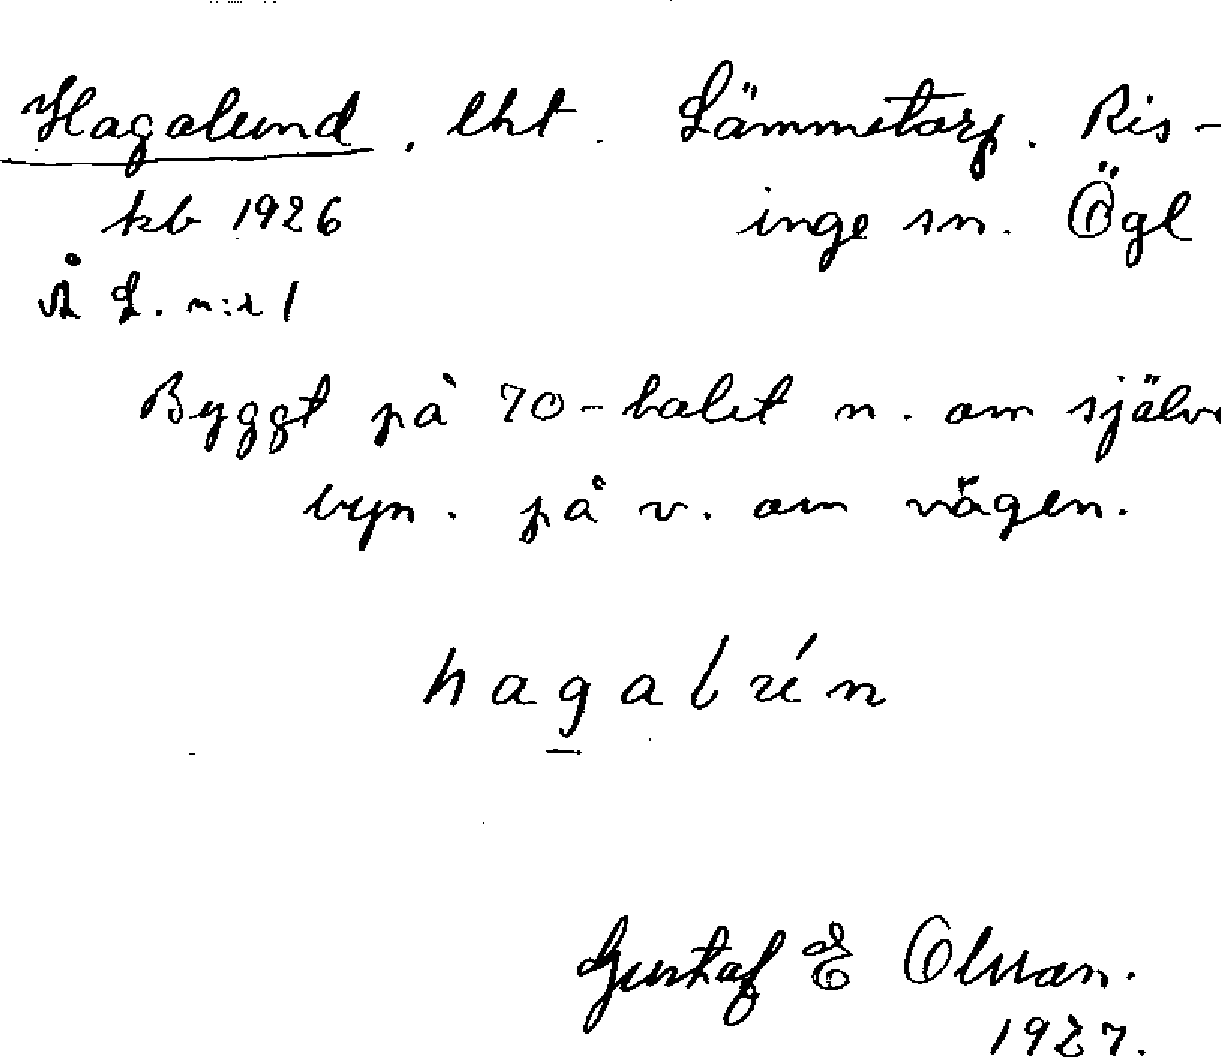 Hagalund, lht. Lämmetorp. Ris-
kb 1926 inge sn. Ögl
Å L. n:r 1
Byggt på 70-talet n. om själva
byn. på v. om vägen.
hagalún
Gustaf E Olsson.
1927.